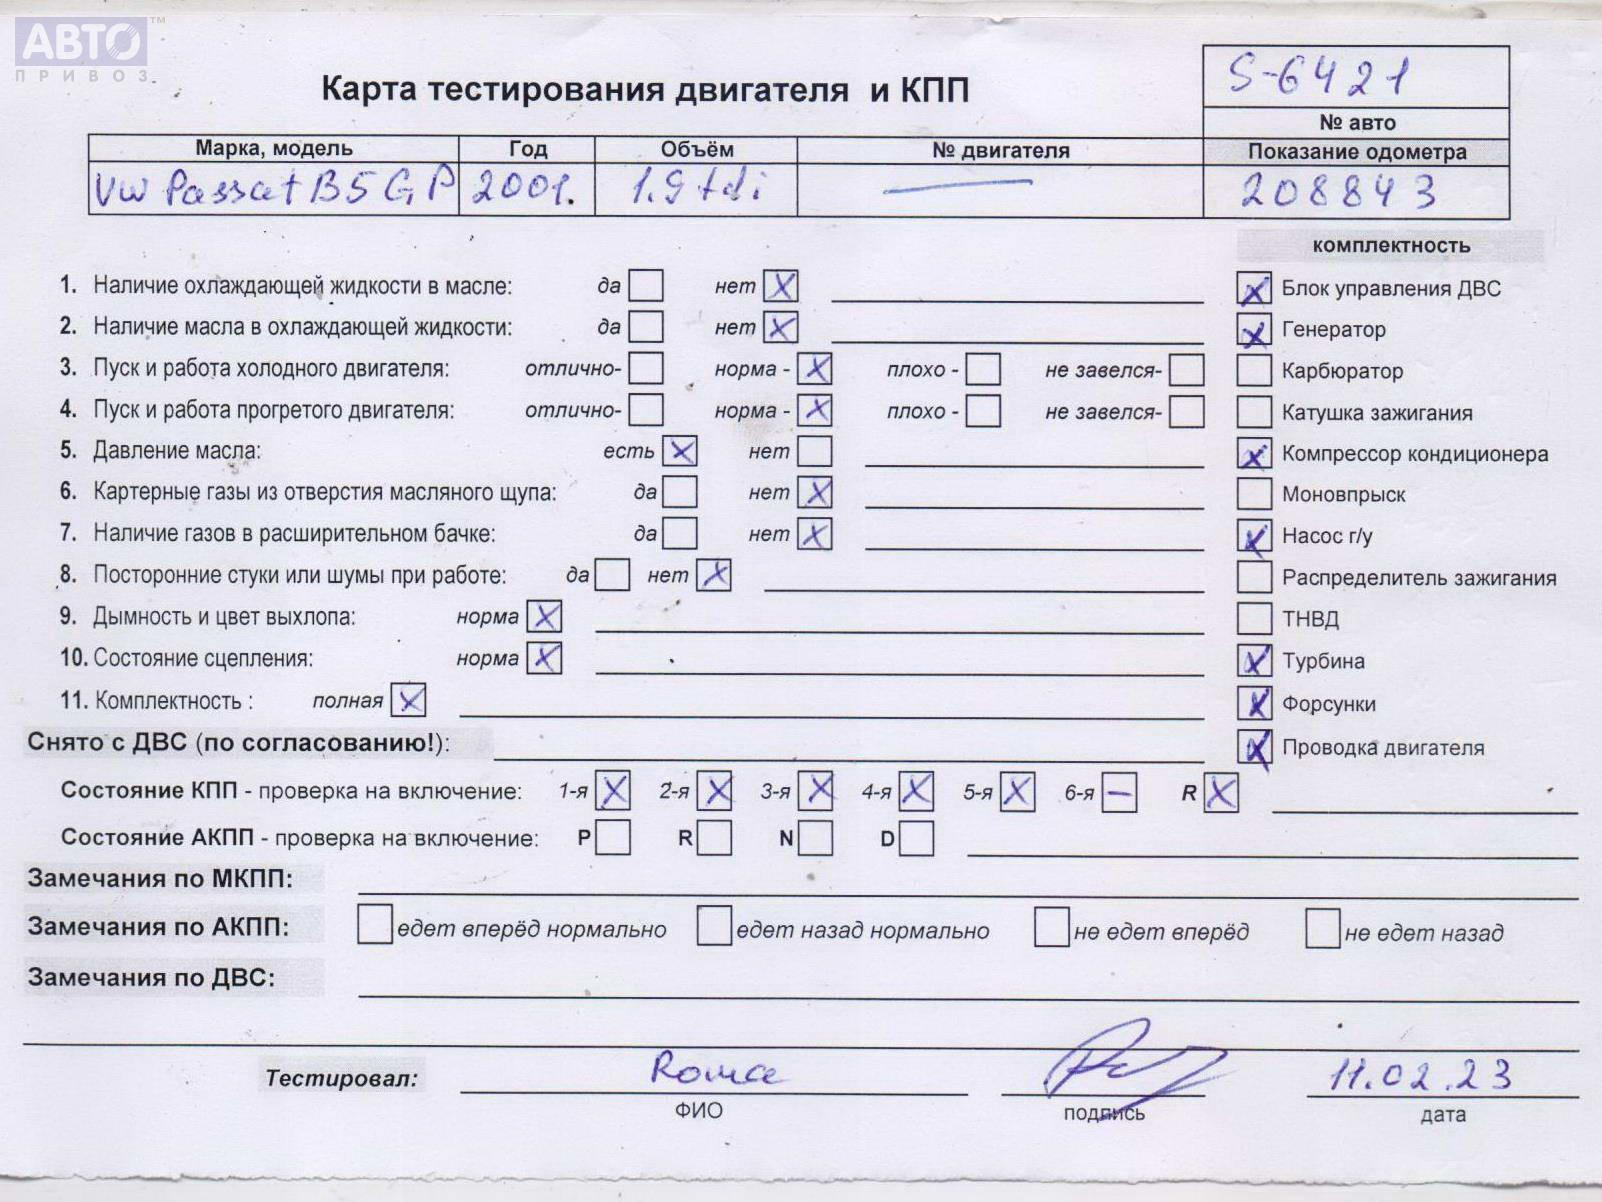 АВТО™
ПРИВОЗ
S-6421
Карта тестирования двигателя и КПП
№ авто
Марка, модель Год Объём № двигателя Показание одометра
VW Passat B5 GP 2001. 1.9 tdi — 208843
комплектность
1. Наличие охлаждающей жидкости в масле: да нет X X Блок управления ДВС
2. Наличие масла в охлаждающей жидкости: да нет X X Генератор
3. Пуск и работа холодного двигателя: отлично- норма - X плохо - не завелся- Карбюратор
4. Пуск и работа прогретого двигателя: отлично- норма - X плохо - не завелся- Катушка зажигания
5. Давление масла: есть X нет X Компрессор кондиционера
6. Картерные газы из отверстия масляного щупа: да нет X Моновпрыск
7. Наличие газов в расширительном бачке: да нет X X Насос г/у
8. Посторонние стуки или шумы при работе: да нет X Распределитель зажигания
9. Дымность и цвет выхлопа: норма X ТНВД
10. Состояние сцепления: норма X X Турбина
11. Комплектность : полная X X Форсунки
Снято с ДВС (по согласованию!): X Проводка двигателя
Состояние КПП - проверка на включение: 1-я X 2-я X 3-я X 4-я X 5-я X 6-я — R X
Состояние АКПП - проверка на включение: P R N D
Замечания по МКПП:
Замечания по АКПП: едет вперёд нормально едет назад нормально не едет вперёд не едет назад
Замечания по ДВС:
Тестировал: Roma 11.02.23
ФИО подпись дата